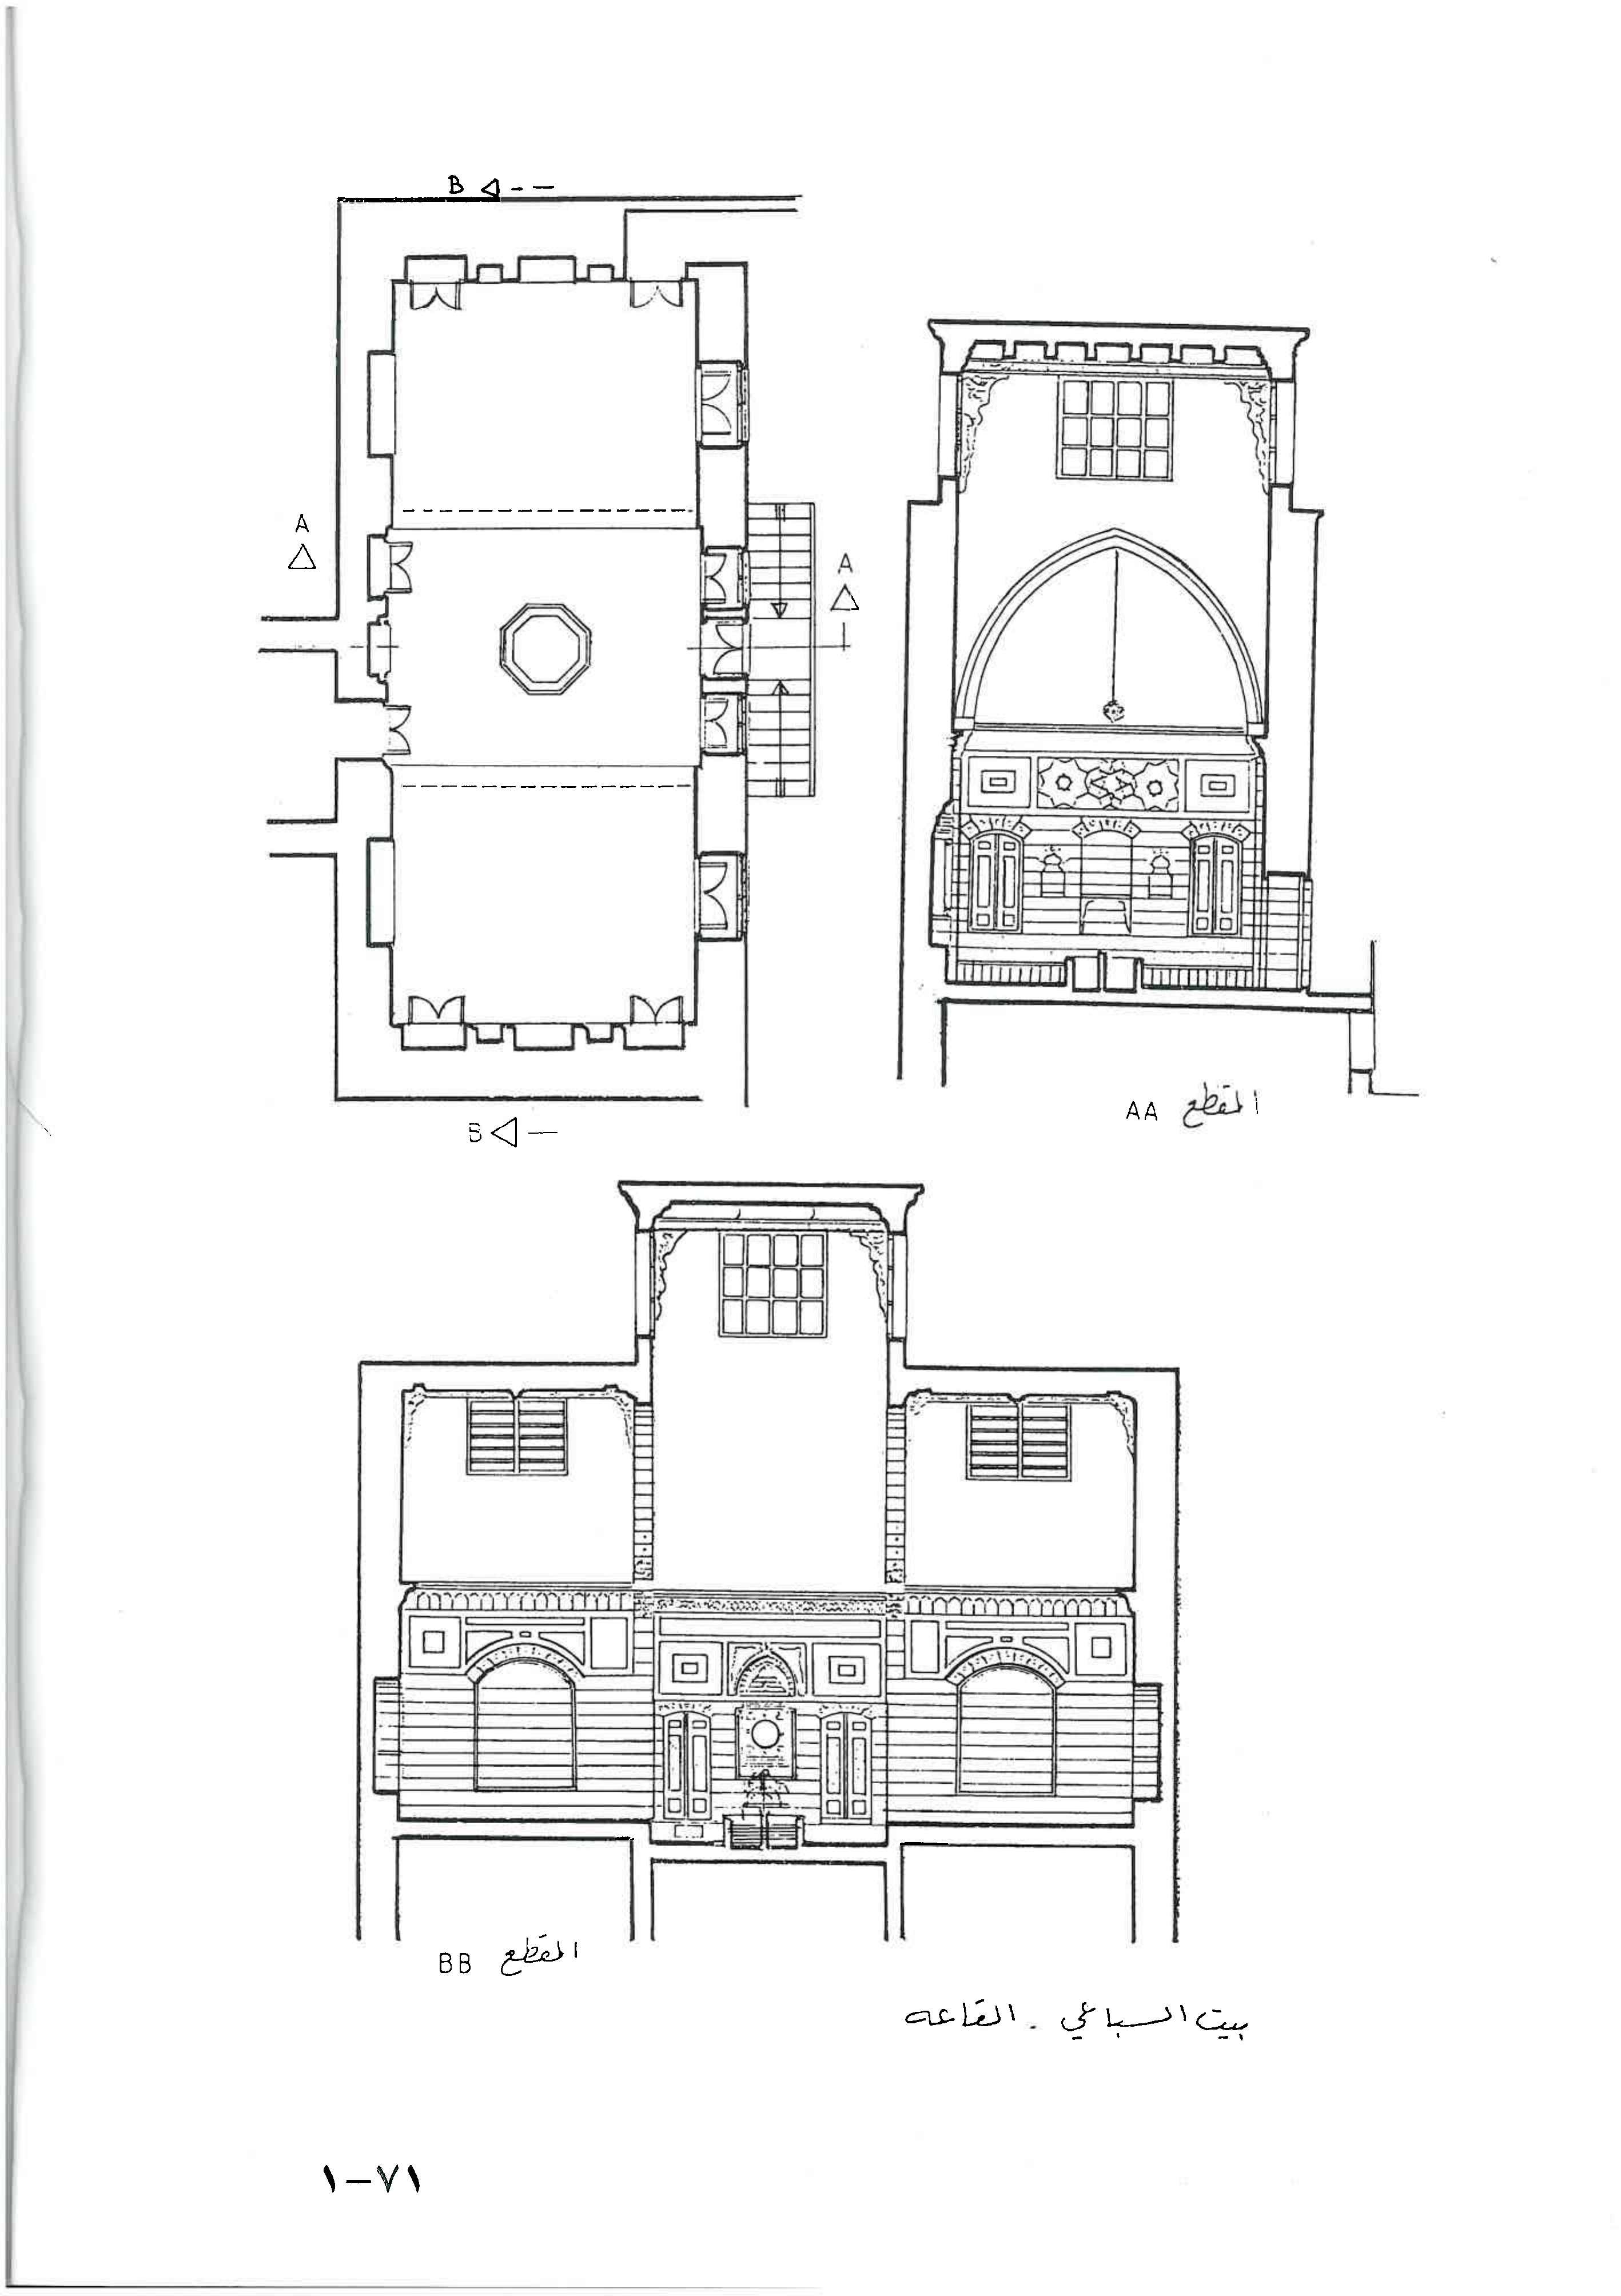 B
A
A
B
AA المقطع
BB المقطع
بيت السباعي - القاعه
١-٧١